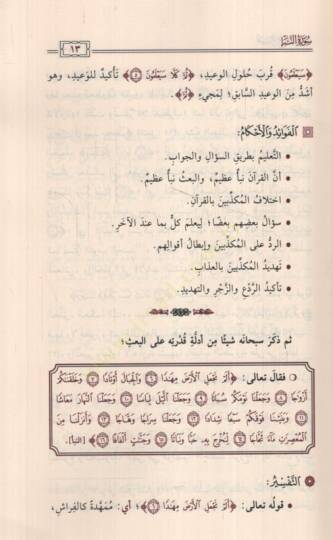 سورة النبأ
١٣
﴿سَيَعْلَمُونَ﴾ قُربَ حُلولِ الوعيدِ، ﴿ثُمَّ كَلَّا سَيَعْلَمُونَ ۝٥﴾ تأكيدٌ للوَعيدِ، وهو
أشدُّ مِنَ الوعيدِ السَّابقِ؛ لِمَجيءِ ﴿ثُمَّ﴾.
الفَوَائِدُ وَالأَحْكَامُ:
• التَّعليمُ بطريقِ السؤالِ والجوابِ.
• أنَّ القرآنَ نبأٌ عظيمٌ، والبعثَ نبأٌ عظيمٌ.
• اختلافُ المُكذِّبينَ بالقرآنِ.
• سؤالُ بعضِهم بعضًا؛ لِيعلمَ كلٌّ بما عندَ الآخَرِ.
• الردُّ على المُكذِّبينَ وإبطالُ أقوالِهم.
• تهديدُ المُكذِّبينَ بالعذابِ.
• تأكيدُ الرَّدْعِ والزَّجْرِ والتهديدِ.
ثم ذكَرَ سبحانَه شيئًا مِن أدلَّةِ قُدْرتِه على البعثِ؛
○ فقالَ تعالى: ﴿أَلَمْ نَجْعَلِ الْأَرْضَ مِهَادًا ۝٦ وَالْجِبَالَ أَوْتَادًا ۝٧ وَخَلَقْنَاكُمْ
أَزْوَاجًا ۝٨ وَجَعَلْنَا نَوْمَكُمْ سُبَاتًا ۝٩ وَجَعَلْنَا اللَّيْلَ لِبَاسًا ۝١٠ وَجَعَلْنَا النَّهَارَ مَعَاشًا
۝١١ وَبَنَيْنَا فَوْقَكُمْ سَبْعًا شِدَادًا ۝١٢ وَجَعَلْنَا سِرَاجًا وَهَّاجًا ۝١٣ وَأَنْزَلْنَا مِنَ
الْمُعْصِرَاتِ مَاءً ثَجَّاجًا ۝١٤ لِنُخْرِجَ بِهِ حَبًّا وَنَبَاتًا ۝١٥ وَجَنَّاتٍ أَلْفَافًا ۝١٦﴾ [النبأ].
التَّفْسِيرُ:
• قولُه تعالى: ﴿أَلَمْ نَجْعَلِ الْأَرْضَ مِهَادًا ۝٦﴾؛ أي: مُمَهَّدةً كالفِراشِ،